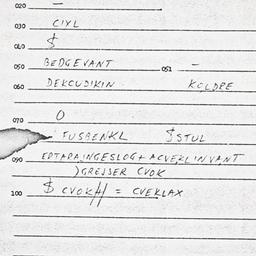 020 —
030 CIYL
040 $
050 BEDGEVANT 051 —
060 DEKCUDIKIN KOLDPE
070 O
TUSBENKL $STUL
090 EDTADA,INGESLOG+ACVEKLINVANT
)GRESSER CVOK
100 $ CVOK = CVEKLAX